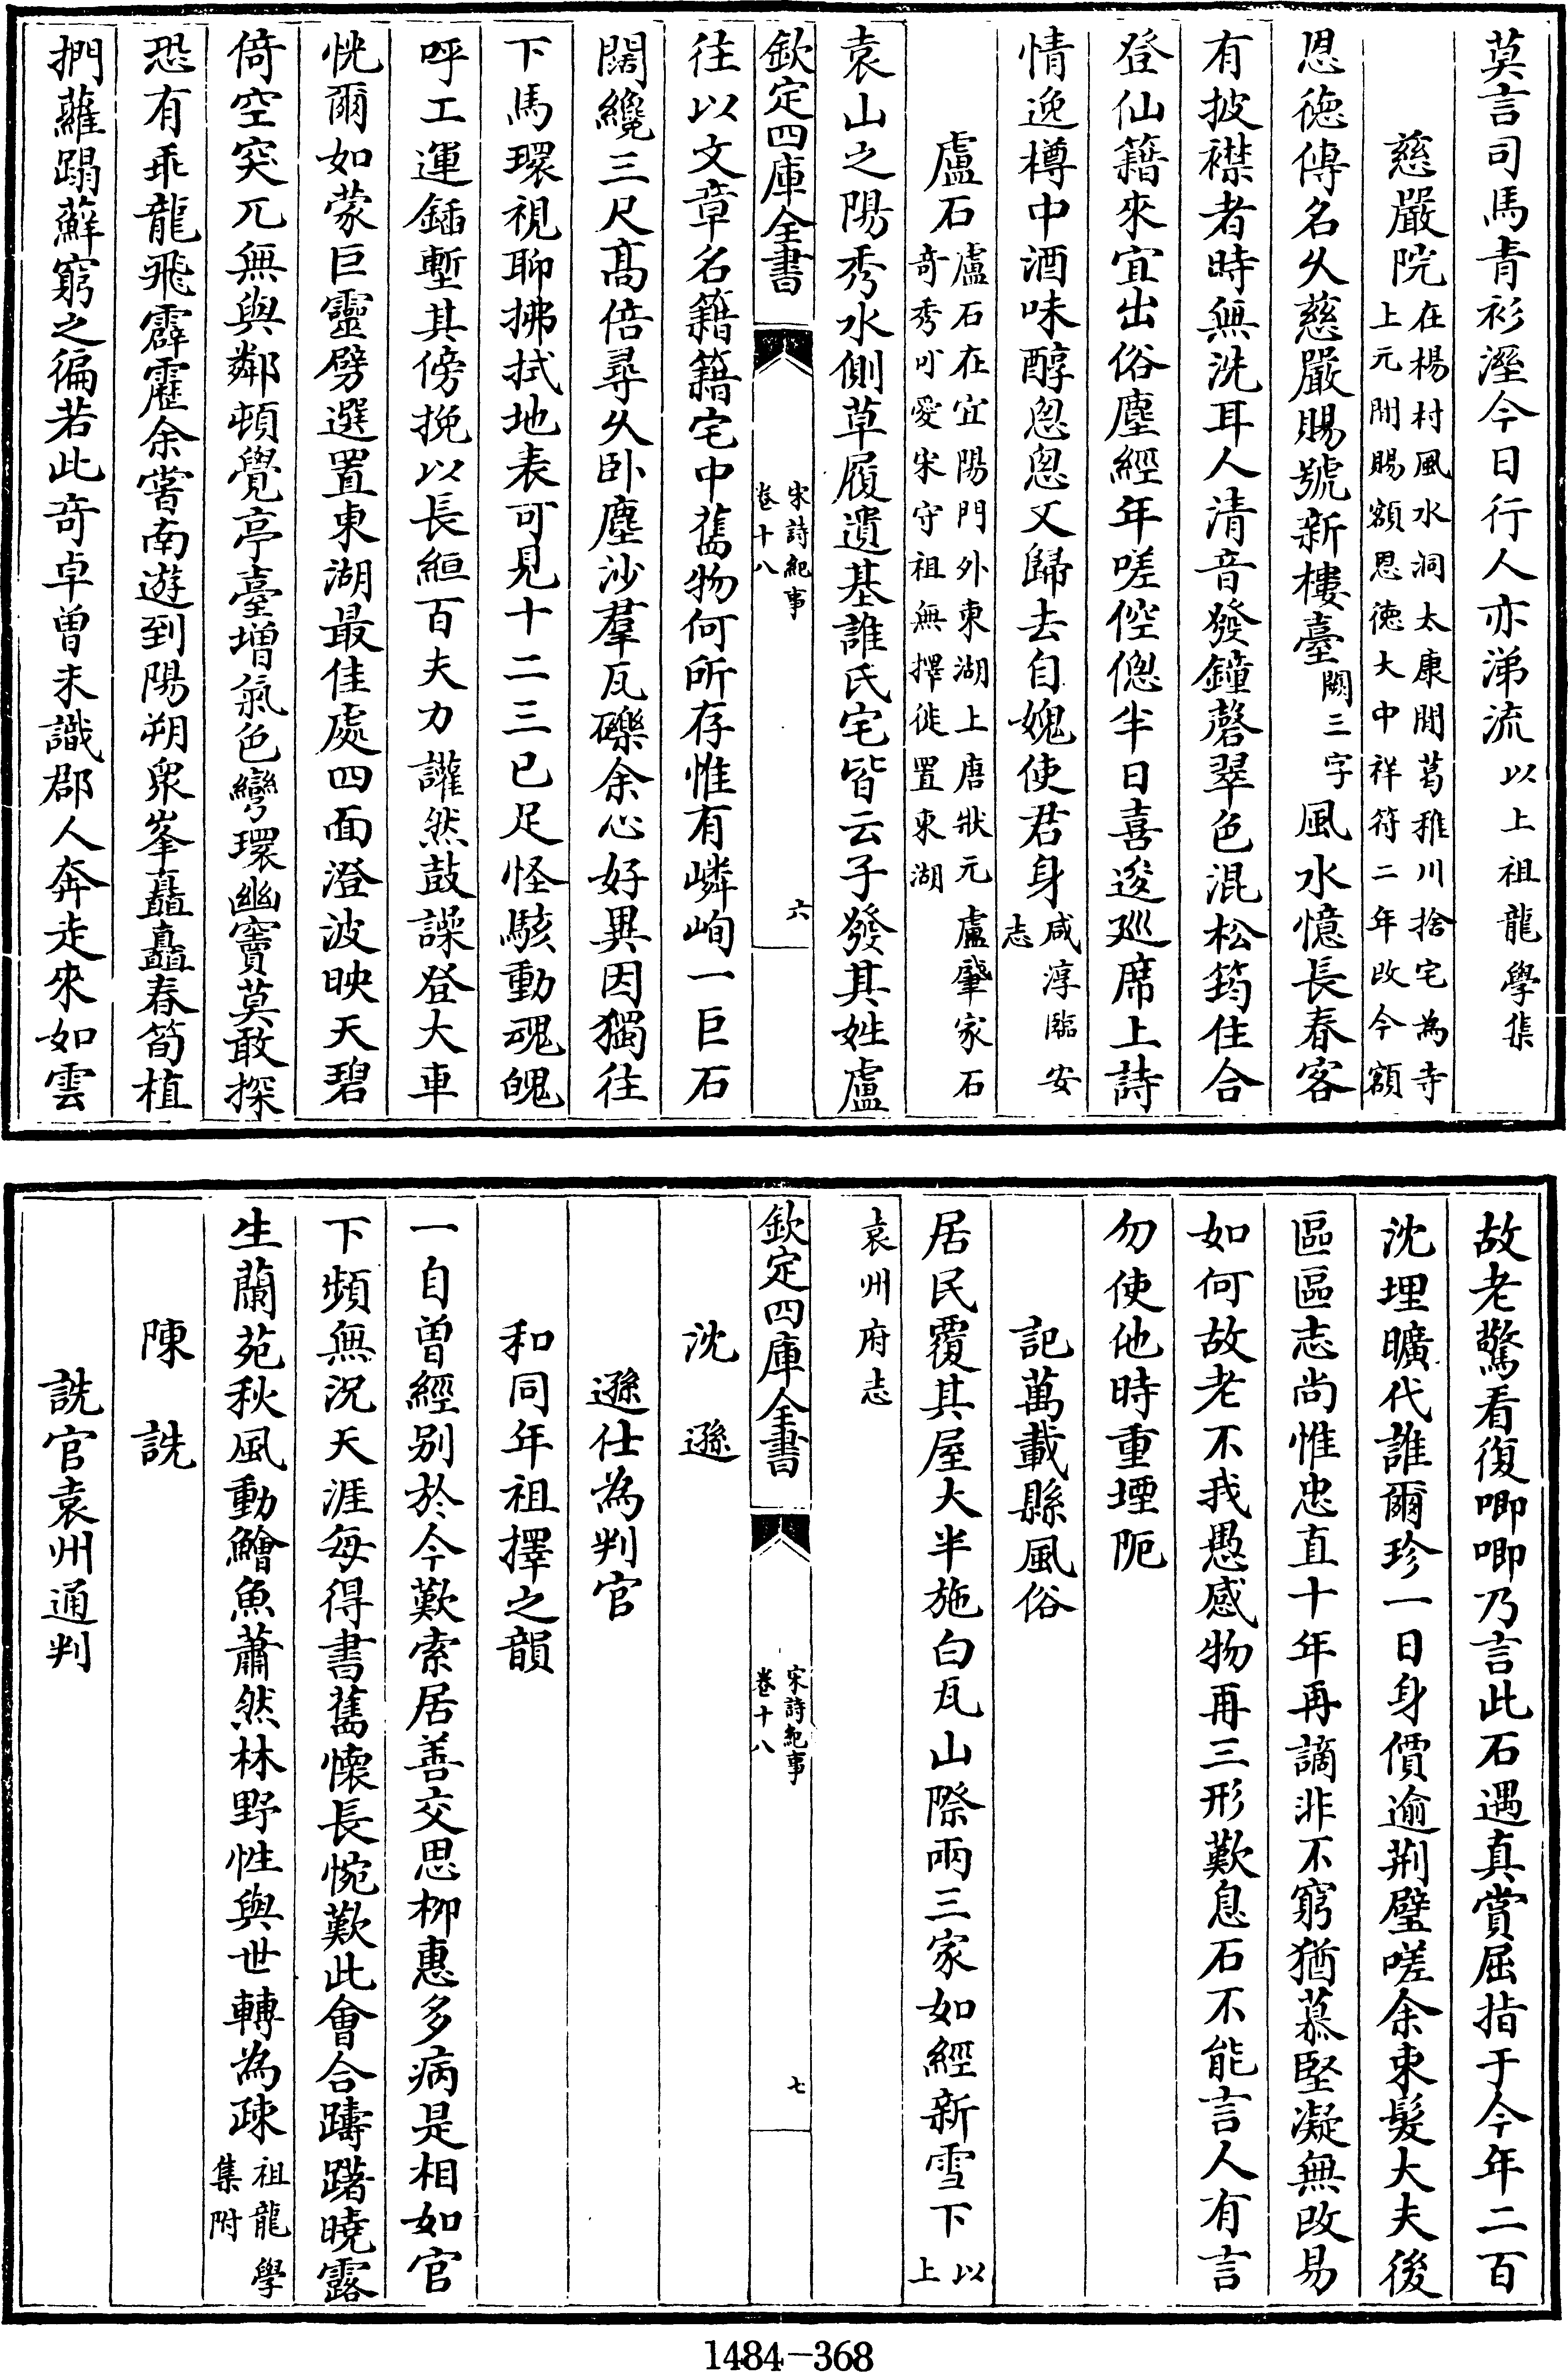 莫言司馬青衫溼今日行人亦涕流以上祖龍學集
慈嚴院在楊村風水洞太康間葛稚川捨宅為寺上元間賜額恩德大中祥符二年改今額
恩德傳名久慈嚴賜號新樓臺闕三字風水憶長春客
有披襟者時無洗耳人清音發鐘磬翠色混松筠住合
登仙籍來宜出俗塵經年嗟倥偬半日喜逡巡席上詩
情逸樽中酒味醇怱怱又歸去自媿使君身咸淳臨安志
盧石盧石在宜陽門外東湖上唐狀元盧肇家石奇秀可愛宋守祖無擇徙置東湖
袁山之陽秀水側草履遺基誰氏宅皆云子發其姓盧
欽定四庫全書
宋詩紀事
卷十八
六
往以文章名籍籍宅中舊物何所存惟有嶙峋一巨石
闊纔三尺高倍尋久卧塵沙羣瓦礫余心好異因獨往
下馬環視聊拂拭地表可見十二三已足怪駭動魂魄
呼工運鍤塹其傍挽以長絙百夫力讙然鼓譟登大車
恍爾如蒙巨靈劈選置東湖最佳處四面澄波映天碧
倚空突兀無與鄰頓覺亭臺增氣色彎環幽竇莫敢探
恐有乖龍飛霹靂余嘗南遊到陽朔衆峯矗矗春筍植
捫蘿蹋蘚窮之徧若此奇卓曾未識郡人奔走來如雲
故老驚看復唧唧乃言此石遇真賞屈指于今年二百
沈埋曠代誰爾珍一日身價逾荆璧嗟余束髮大夫後
區區志尚惟忠直十年再謫非不窮猶慕堅凝無改易
如何故老不我愚感物再三形歎息石不能言人有言
勿使他時重堙阨
記萬載縣風俗
居民覆其屋大半施白瓦山際兩三家如經新雪下以上
袁州府志
欽定四庫全書
宋詩紀事
卷十八
七
沈遜
遜仕為判官
和同年祖擇之韻
一自曾經别於今歎索居善交思柳惠多病是相如官
下頻無況天涯每得書舊懷長惋歎此會合躊躇曉露
生蘭苑秋風動鱠魚蕭然林野性與世轉為疎祖龍學集附
陳詵
詵官袁州通判
1484-368